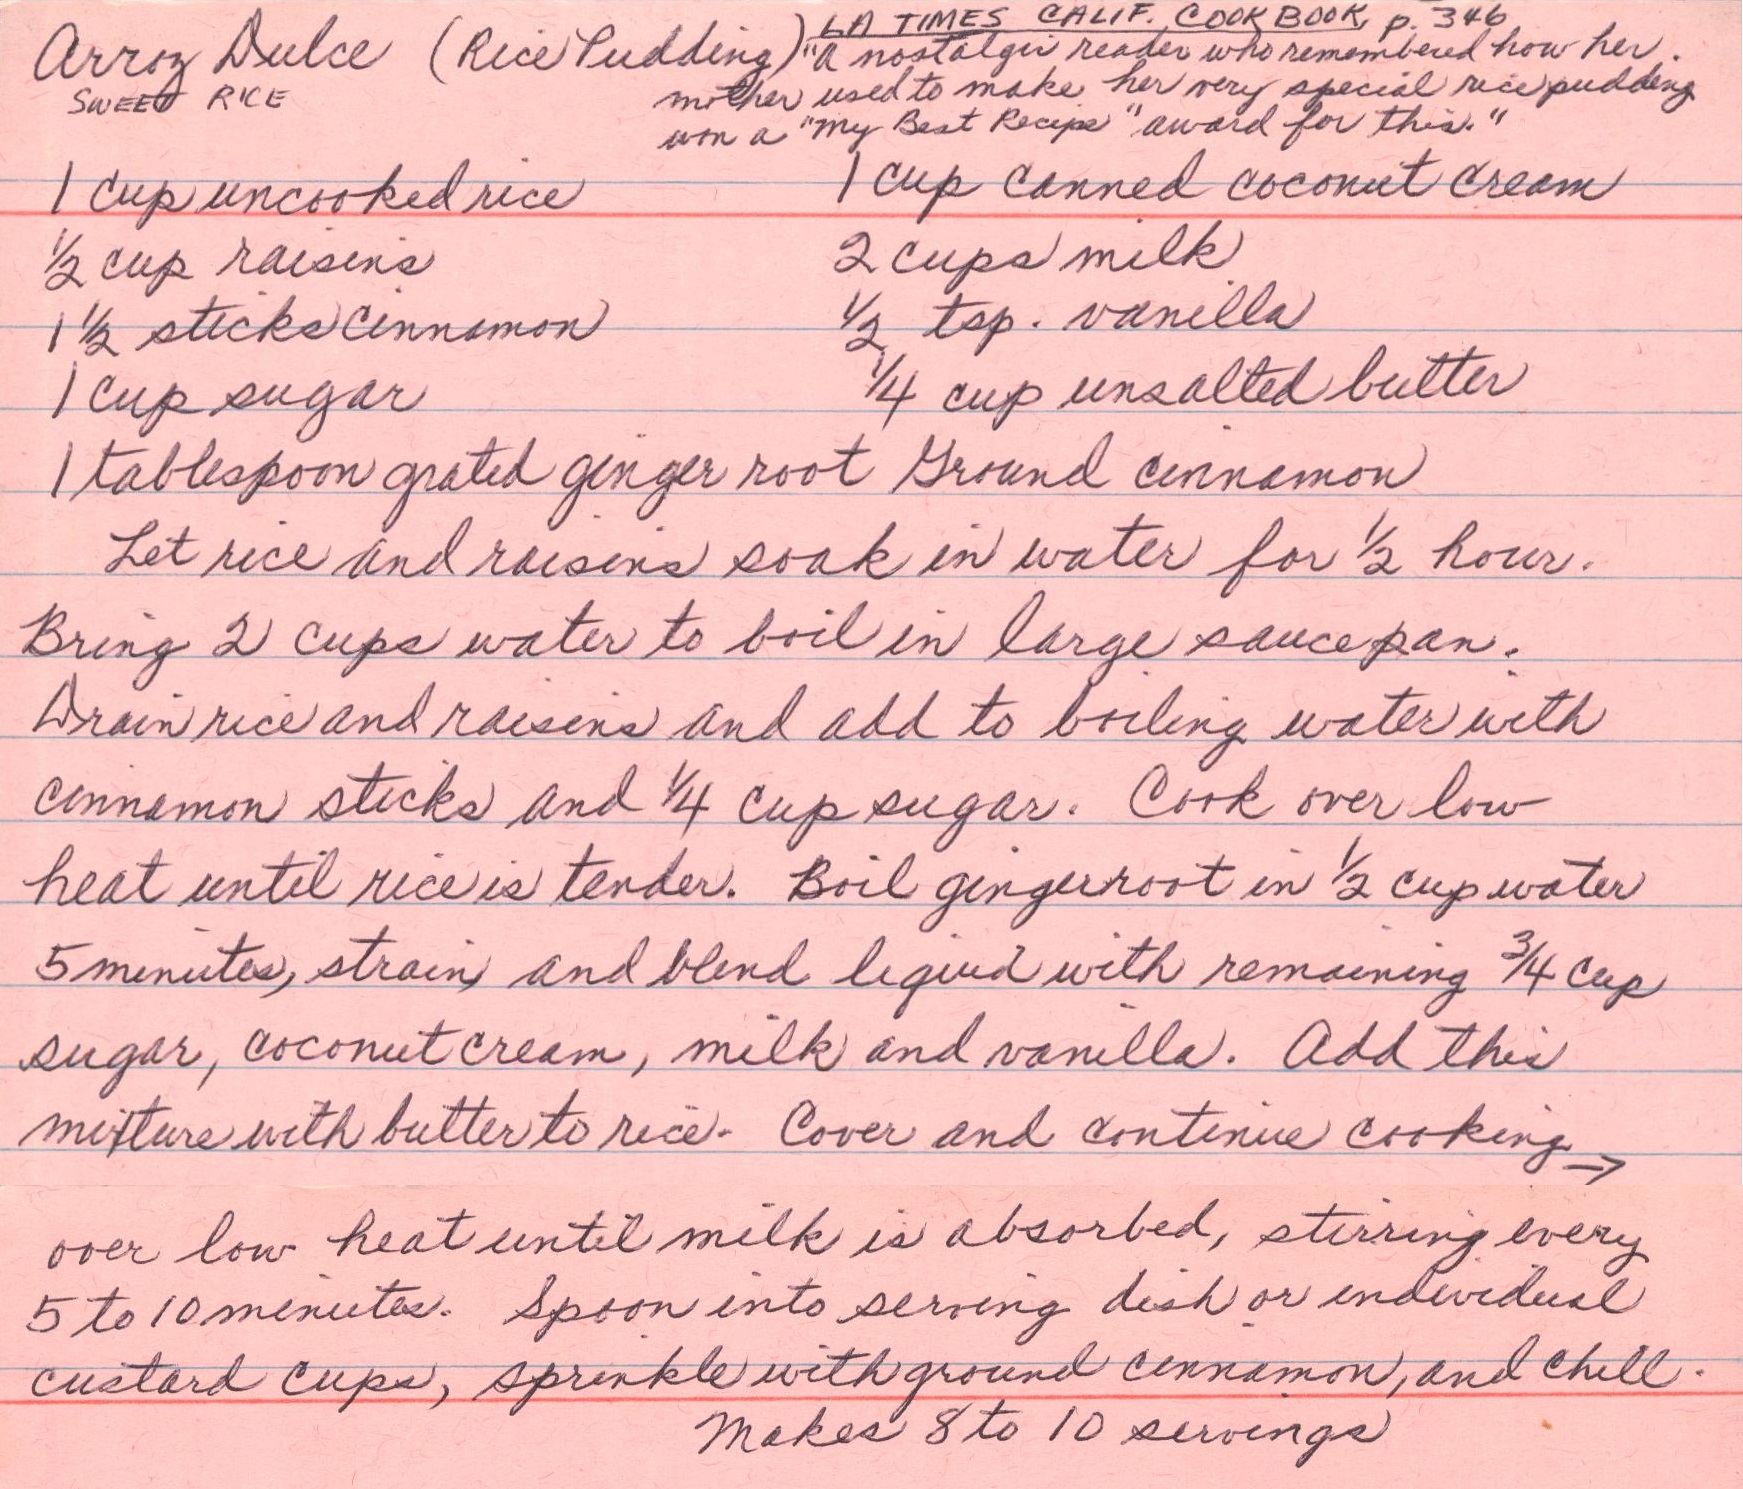 LA TIMES CALIF. COOK BOOK, p. 346
Arroz Dulce (Rice Pudding) "A nostalgic reader who remembered how her
SWEET RICE mother used to make her very special rice pudding
won a "My Best Recipe" award for this."
1 cup uncooked rice 1 cup canned coconut cream
1/2 cup raisins 2 cups milk
1 1/2 sticks cinnamon 1/2 tsp. vanilla
1 cup sugar 1/4 cup unsalted butter
1 tablespoon grated ginger root Ground cinnamon
Let rice and raisins soak in water for 1/2 hour.
Bring 2 cups water to boil in large saucepan.
Drain rice and raisins and add to boiling water with
cinnamon sticks and 1/4 cup sugar. Cook over low
heat until rice is tender. Boil gingerroot in 1/2 cup water
5 minutes, strain, and blend liquid with remaining 3/4 cup
sugar, coconut cream, milk and vanilla. Add this
mixture with butter to rice. Cover and continue cooking →
over low heat until milk is absorbed, stirring every
5 to 10 minutes. Spoon into serving dish or individual
custard cups, sprinkle with ground cinnamon, and chill.
Makes 8 to 10 servings